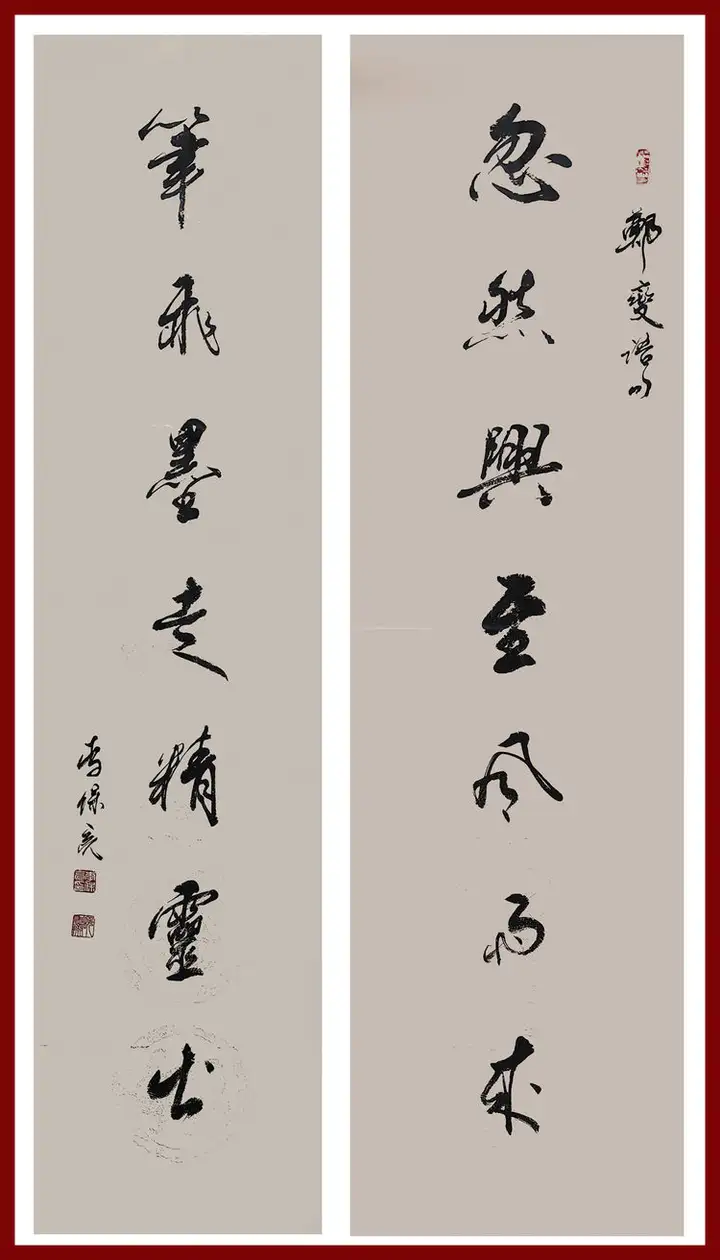 鄭燮詩句
忽然興至风雨来
筆飛墨走精靈出
李保亮